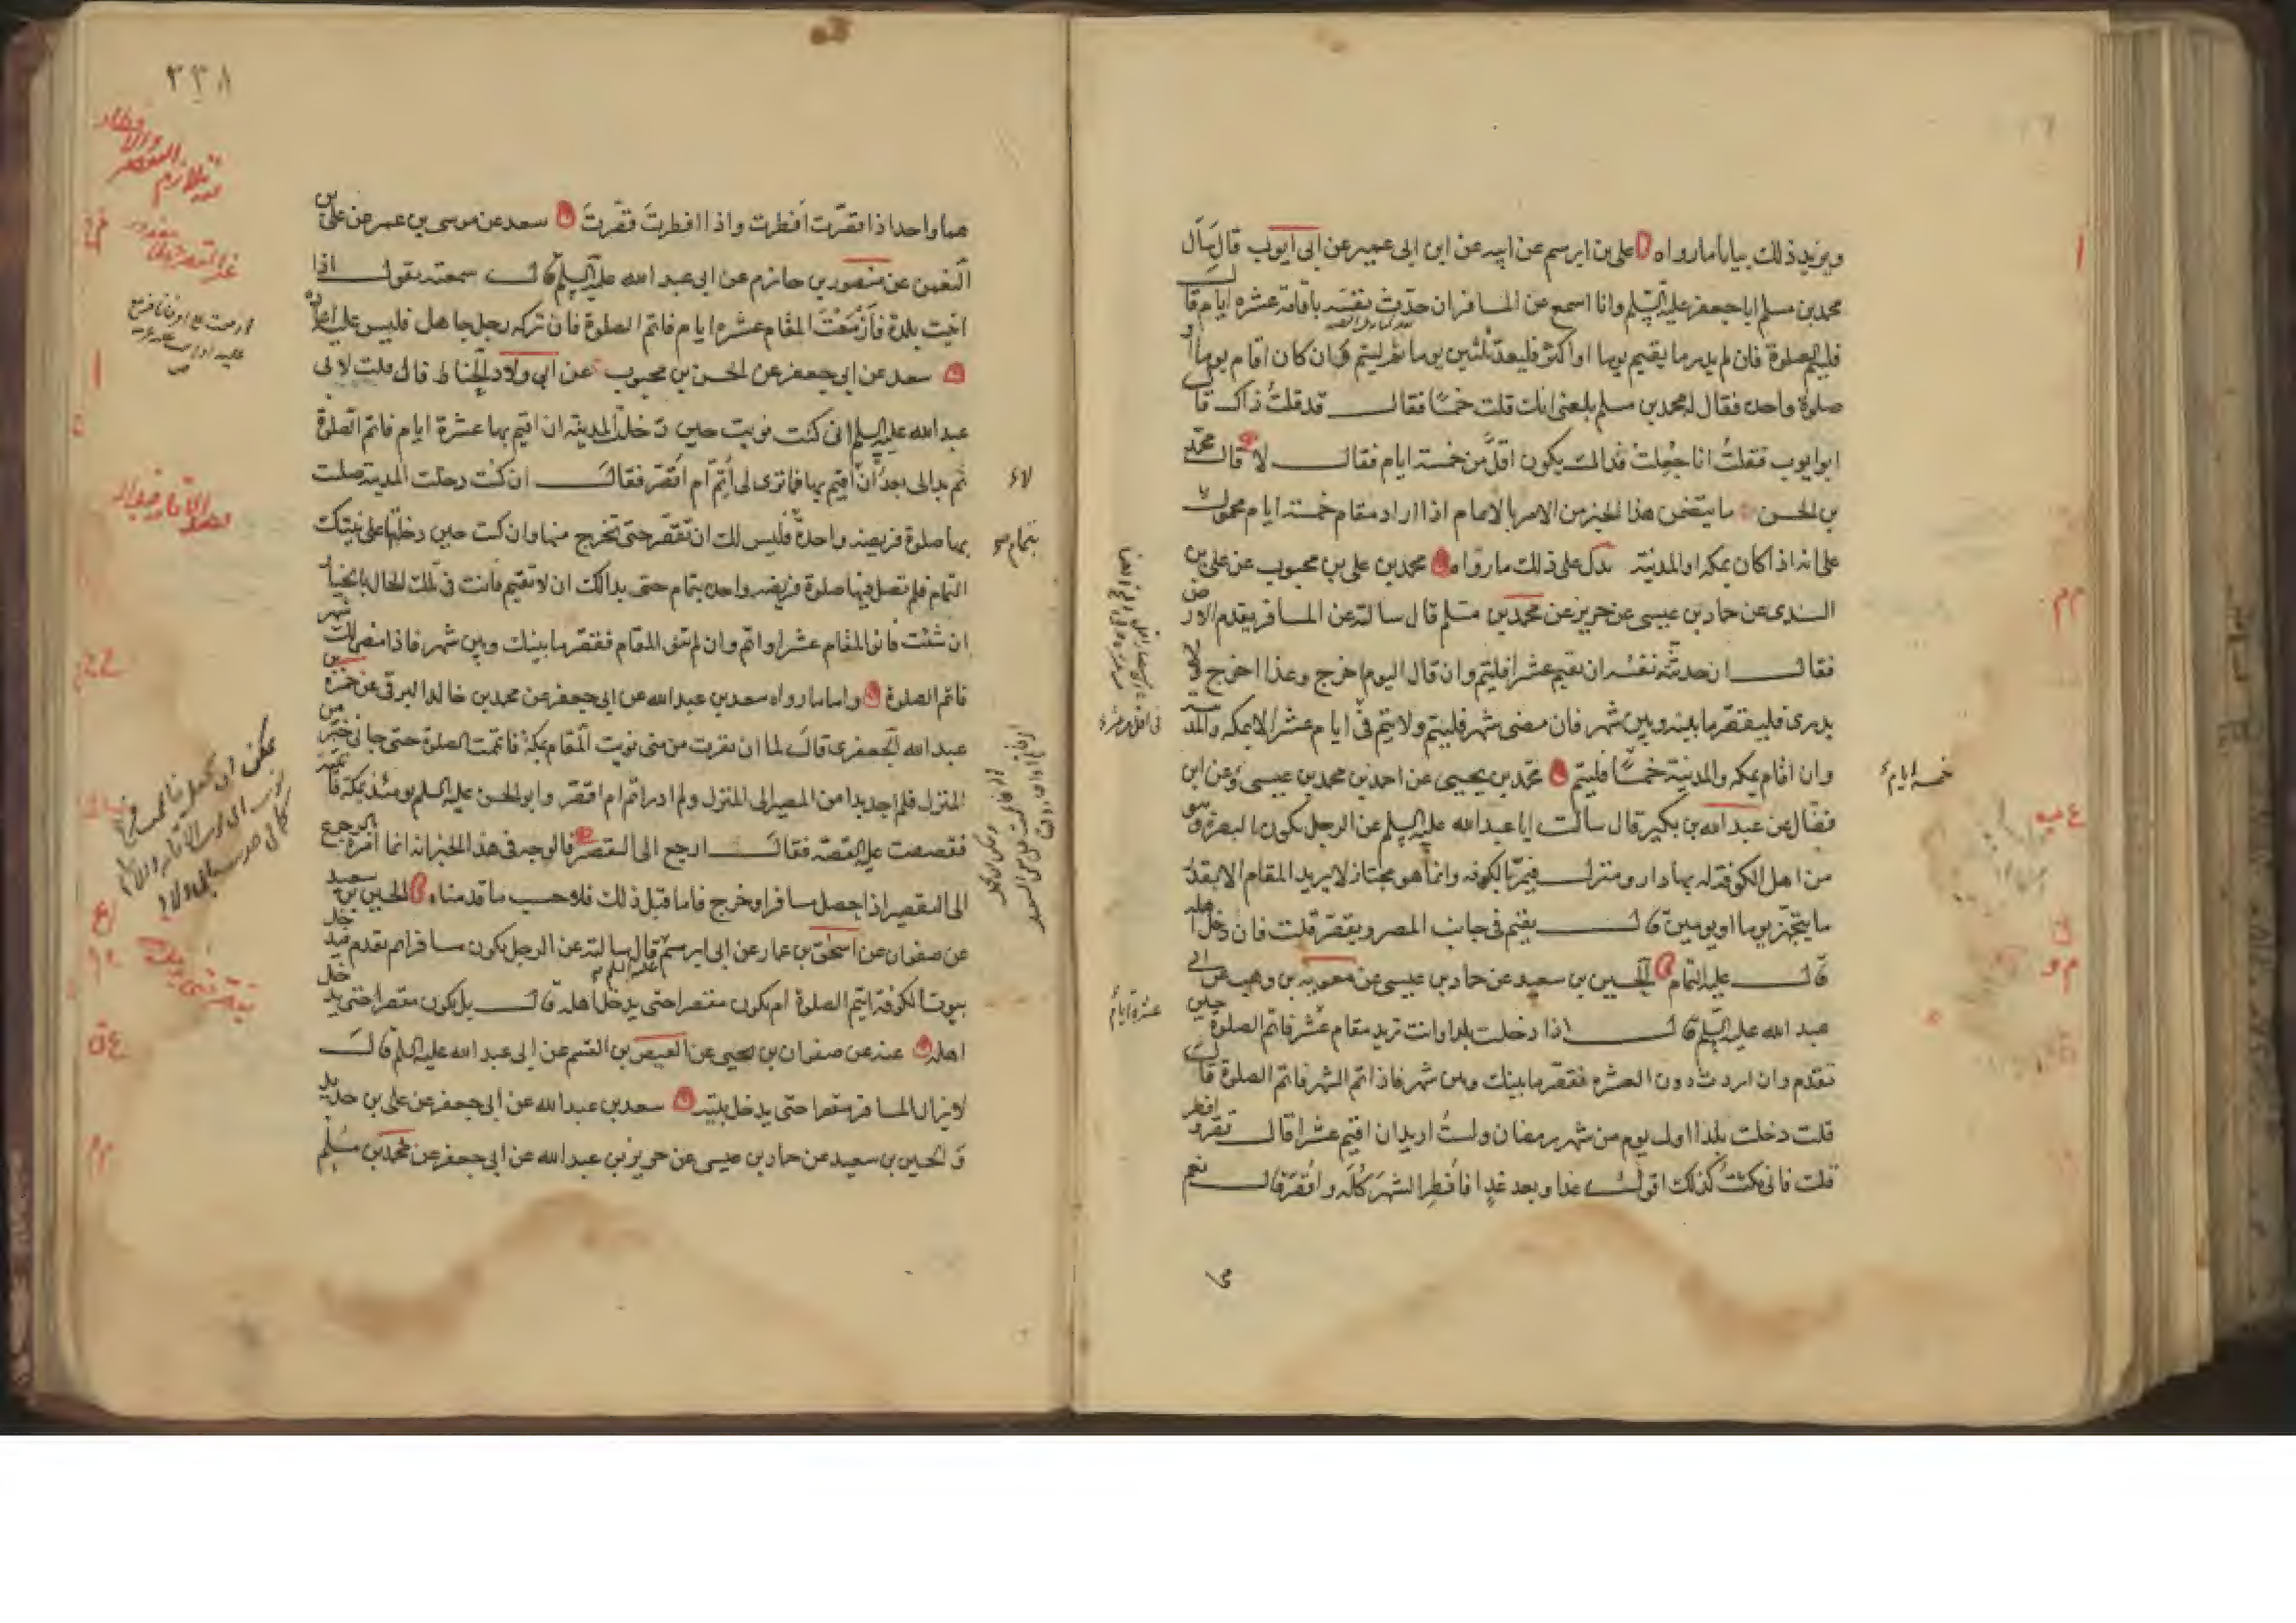 ويزيد ذلك بيانا ما رواه علي بن ابرهيم عن ابيه عن ابن ابى عمير عن ابى ايوب قال سأل
محمد بن مسلم ابا جعفر عليه السلم وانا اسمع عن المسافر ان حدث نفسه باقامة عشره ايام قال
فليتم الصلوة فان لم يدر ما يقيم يوما او اكثر فليعد ثلثين يوما ثم ليتم وان كان اقام يوما او
صلوة واحده فقال له محمد بن مسلم بلغنى انك قلت خمسًا فقال قد قلتُ ذاك قال
ابو ايوب فقلتُ انا جُعِلتُ فداك يكون اقلَّ من خمسة ايام فقال لا قال محمّد
بن الحسن ما يتضمن هذا الخبر من الامر بالاتمام اذا اراد مقام خمسة ايام محمول
على انه اذا كان بمكه او المدينة يدل على ذلك ما رواه محمد بن علي بن محبوب عن علي بن
السندى عن حماد بن عيسى عن حريز عن محمد بن مسلم قال سالته عن المسافر يقدم الارض
فقال ان حدثته نفسه ان يقيم عشرا فليتم وان قال اليوم اخرج وغدا اخرج ولا
يدرى فليقصّر ما بينه وبين شهر فان مضى شهر فليتم ولا يتم فى ايام عشر الا بمكه والمدينة
وان اقام بمكه والمدينة خمسًا فليتم محمّد بن يحيى عن احمد بن محمد بن عيسى وعن ابن
فضال عن عبد الله بن بكير قال سالت ابا عبد الله عليه السلم عن الرجل يكون بالبصرة وهو
من اهل الكوفة له بها دار ومنزل فيمرّ بالكوفه وانما هو مجتاز لا يريد المقام الا بقدر
ما يتجهّز يوما او يومين قال يقيم فى جانب المصر ويقصّر قلت فان دخل اهله
قال عليه التمام الحسين بن سعيد عن حماد بن عيسى عن معويه بن وهب عن ابى
عبد الله عليه السلم قال اذا دخلت بلدا وانت تريد مقام عشر فاتم الصلوة حين
تقدم وان اردت دون العشره فقصّر ما بينك وبين شهر فاذا تم الشهر فاتم الصلوة قال
قلت دخلت بلدا اول يوم من شهر رمضان ولستُ اريد ان اقيم عشرا قال قصّر وافطر
قلت فانى مكثتُ كذلك اقول غدا وبعد غدٍ افَافطِر الشهرَ كلَّه واقصّر قال نعم
خمسة ايام
عشرة ايام
٢٣٨
هما واحد اذا قصّرت افطرت واذا افطرتَ قصّرتَ سعد عن موسى بن عمر عن علي بن
النعمن عن منصور بن حازم عن ابى عبد الله عليه السلم قال سمعته يقول اذا
اتيت بلدة فأزمعتَ المقام عشره ايام فاتم الصلوة فان تركه رجل جاهل فليس عليه اعادة
سعد عن ابى جعفر عن الحسن بن محبوب عن ابى ولاد الحناط قال قلت لابى
عبد الله عليه السلم انى كنت نويت حين دخلت المدينة ان اقيم بها عشرة ايام فاتم الصلوة
ثم بدا لى بعدُ ان اقيم بها فما ترى لى أتم ام اقصّر فقال ان كنت دخلت المدينة صليت
بها صلوة فريضة واحدة فليس لك ان تقصّر حتى تخرج منها وان كنت حين دخلتها على نيتك
التمام فلم تصل فيها صلوة فريضه واحده بتمام حتى بدا لك ان لا تقيم فانت فى تلك الحال بالخيار
ان شئت فانو المقام عشرا واتم وان لم تنو المقام فقصّر ما بينك وبين شهر فاذا مضى لك شهر
فاتم الصلوة واما ما رواه سعد بن عبد الله عن ابى جعفر عن محمد بن خالد البرقى عن حمزه بن
عبد الله الجعفرى قال لما ان نفرت من منى نويت المقام بمكة فاتممت الصلوة حتى جاءنى خبر من
المنزل فلم اجد بدا من المصير الى المنزل ولم ادر اتم ام اقصّر وابو الحسن عليه السلم يومئذ بمكة فاتيته
فقصصت عليه القصّه فقال ارجع الى التقصير فالوجه فى هذا الخبر انه انما امره بالرجوع
الى التقصير اذا حصل مسافرا وخرج فاما قبل ذلك فلا حسب ما قدمناه الحسين بن سعيد
عن صفوان عن اسحق بن عمار عن ابى ابرهيم قال سالته عن الرجل يكون مسافرا ثم يقدم فيدخل
بيوت الكوفة ايتم الصلوة ام يكون مقصرا حتى يدخل اهله قال بل يكون مقصرا حتى يدخل
اهله عنه عن صفوان بن يحيى عن العيص بن القسم عن ابى عبد الله عليه السلم قال
لا يزال المسافر مقصرا حتى يدخل بيته سعد بن عبد الله عن ابى جعفر عن علي بن حديد
و الحسين بن سعيد عن حماد بن عيسى عن حريز بن عبد الله عن ابى جعفر عن محمد بن مسلم